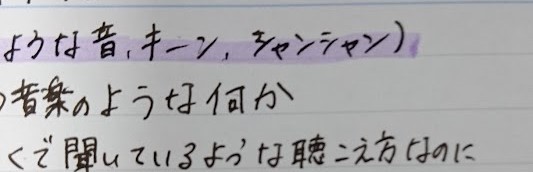 ような音、キーン、シャンシャン)
音楽のような何か
くで聞いているような聴こえ方なのに